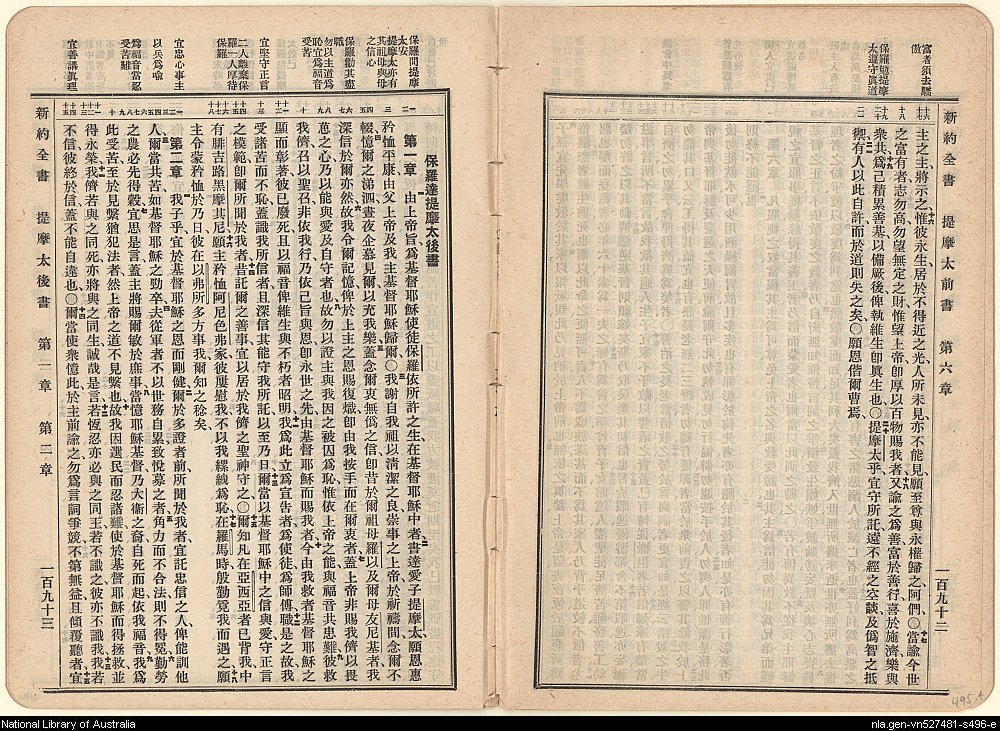 新約全書 提摩太前書 第六章 一百九十二
富者須去驕
傲
保羅勉提摩
太遵守眞道
主之主、將示之、惟彼永生、居於不得近之光、人所未見、亦不能見、願至尊與永權歸之、阿們、○當諭今世
之富有者、志勿高、勿望無定之財、惟望上帝、卽厚以百物賜我者、又諭之爲善、富於善行、喜於施濟、樂與
衆共、爲己積累善基、以備厥後、俾執維生、卽眞生也、○提摩太乎、宜守所託、遠不經之空談、及僞智之抵
禦、有人以此自許、而於道則失之矣、○願恩偕爾曹焉、
保羅問提摩
太安
提摩太亦有
其祖母與母
之信心
保羅勸其盡
職
勿以主道爲
恥宜爲福音
受苦
宜堅守正言
二人離棄保
羅一人厚待
保羅
宜忠心事主
以兵爲喻
爲福音當忍
受苦難
宜善講眞理
保羅達提摩太後書
第一章 由上帝旨、爲基督耶穌使徒保羅、依所許之生、在基督耶穌中者、書達愛子提摩太、願恩惠
矜恤平康、由父上帝、及我主基督耶穌歸爾、○我謝自我祖以淸潔之良、崇事之上帝、於祈禱間、念爾不
輟、憶爾之涕泗、晝夜企慕見爾、以充我樂、蓋念爾衷無僞之信、卽昔於爾祖母羅以、及爾母友尼基者、我
深信於爾亦然、故我令爾記憶、俾於上主之恩賜復熾、卽由我按手而在爾衷者、蓋上帝非賜我儕以畏
葸之心、乃以能與愛、及自守者也、故勿以證主與我因之被囚爲恥、惟依上帝之能、與福音共患難、彼救
我儕、召我以聖召、非依我行、乃依己旨與恩、卽永世之先、由基督耶穌而賜我者、今由我救者基督耶穌之
顯而彰著、彼已廢死、且以福音俾維生與不朽者昭明、我爲此立爲宣吿者、爲使徒爲師傅、職是之故、我
受諸苦、而不恥、蓋識我所信者、且深信其能守我所託、以至乃日、爾當以基督耶穌中之信與愛、守正言
之模範、卽爾所聞於我者、昔託爾之善事、宜以居於我儕之聖神守之、○爾知凡在亞西亞者、已背我、中
有腓吉路黑摩其尼、願主矜恤阿尼色弗家、彼屢慰我、不以我縲絏爲恥、在羅馬時、殷勤覓我而遇之、願
主令蒙矜恤於乃日、彼在以弗所多方事我、爾知之稔矣、
第二章 我子乎、宜於基督耶穌之恩而剛健、爾於多證者前、所聞於我者、宜託忠信之人、俾能訓他
人、爾當共苦、如基督耶穌之勁卒、夫從軍者、不以世務自累、致悅募之者、角力而不合法、則不得冕、勤勞
之農、必先得穀、宜思是言、蓋主將賜爾敏於庶事、當憶耶穌基督、乃大衞之裔、自死而起、依我福音、我爲
此受苦、至於見縶猶犯法者、然上帝之道、不見縶也、故我因選民而忍諸難、使於基督耶穌而得拯救、並
得永榮、我儕若與之同死、亦將與之同生、誠哉是言、若恆忍、亦必與之同王、若不識之、彼亦不識我、我若
不信、彼終於信、蓋不能自違也、○爾當使衆憶此、於主前諭之、勿爲言詞爭競、不第無益、且傾覆聽者、宜
新約全書 提摩太後書 第一章 第二章 一百九十三
495
National Library of Australia
nla.gen-vn527481-s496-e